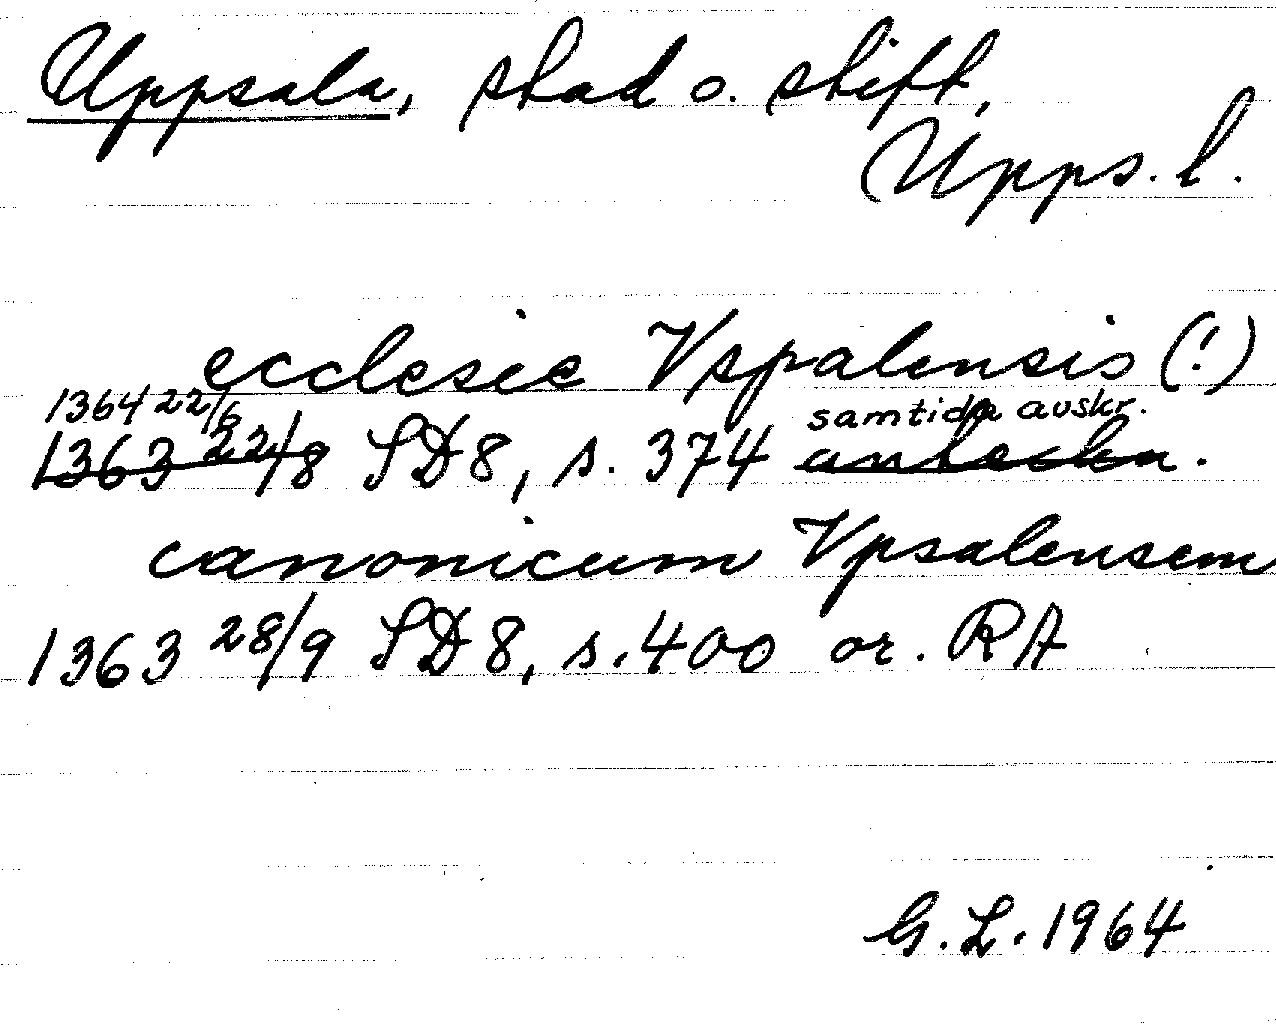 Uppsala, stad o. stift,
Upps. l.
ecclesie Vspalensis (!)
1364 22/6 samtida avskr.
1363 22/8 SD 8, s. 374 anteckn.
canonicum Vpsalensem
1363 28/9 SD 8, s. 400 or. RA
G. L. 1964